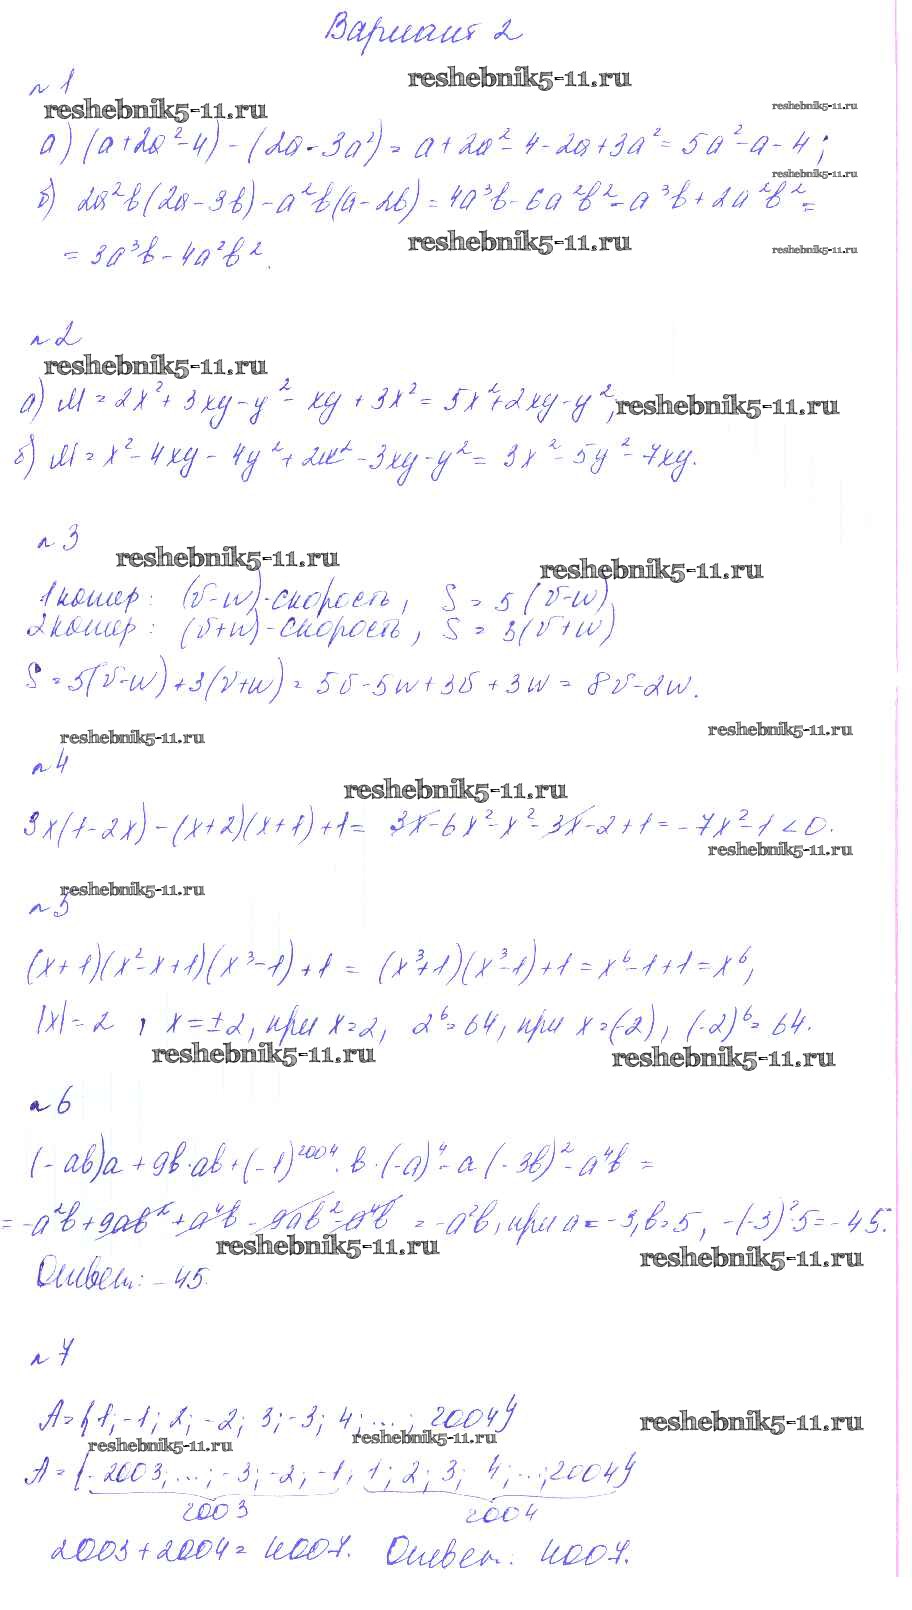 Вариант 2
№1
reshebnik5-11.ru
reshebnik5-11.ru
reshebnik5-11.ru
а) (a+2a²-4) - (2a-3a²) = a+2a²-4-2a+3a² = 5a²-a-4;
reshebnik5-11.ru
б) 2a²b(2a-3b) - a²b(a-2b) = 4a³b-6a²b²-a³b+2a²b² =
= 3a³b-4a²b².
reshebnik5-11.ru
reshebnik5-11.ru
№2
reshebnik5-11.ru
а) M = 2x²+3xy-y²-xy+3x² = 5x²+2xy-y²;
reshebnik5-11.ru
б) M = x²-4xy-4y²+2x²-3xy-y² = 3x²-5y²-7xy.
№3
reshebnik5-11.ru
reshebnik5-11.ru
1 катер: (v-w)-скорость, S = 5(v-w)
2 катер: (v+w)-скорость, S = 3(v+w)
S = 5(v-w)+3(v+w) = 5v-5w+3v+3w = 8v-2w.
reshebnik5-11.ru
reshebnik5-11.ru
№4
reshebnik5-11.ru
3x(1-2x) - (x+2)(x+1)+1 = 3x-6x²-x²-3x-2+1 = -7x²-1 < 0.
reshebnik5-11.ru
reshebnik5-11.ru
№5
(x+1)(x²-x+1)(x³-1)+1 = (x³+1)(x³-1)+1 = x⁶-1+1 = x⁶,
|x| = 2, x = ±2, при x=2, 2⁶=64, при x=(-2), (-2)⁶=64.
reshebnik5-11.ru
reshebnik5-11.ru
№6
(-ab)a + 9b·ab + (-1)²⁰⁰⁴·b·(-a)⁴ - a(-3b)² - a⁴b =
= -a²b+9ab²+a⁴b-9ab²-a⁴b = -a²b, при a=-3, b=5, -(-3)²·5 = -45.
reshebnik5-11.ru
reshebnik5-11.ru
Ответ: -45.
№7
A = {1; -1; 2; -2; 3; -3; 4; ...; 2004}
reshebnik5-11.ru
reshebnik5-11.ru
reshebnik5-11.ru
A = {-2003; ...; -3; -2; -1; 1; 2; 3; 4; ...; 2004}
2003 2004
2003+2004 = 4007. Ответ: 4007.